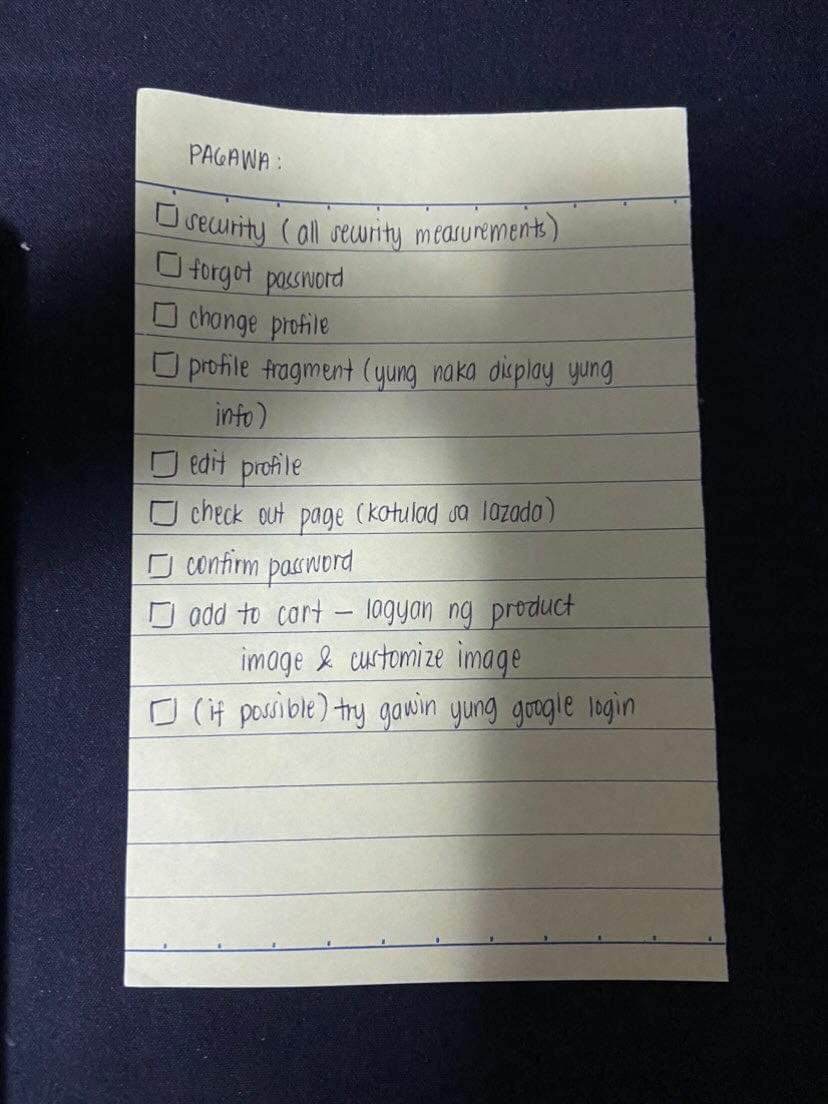 PAGAWA:
☐ security (all security measurements)
☐ forgot password
☐ change profile
☐ profile fragment (yung naka display yung
info)
☐ edit profile
☐ check out page (katulad sa lazada)
☐ confirm password
☐ add to cart – lagyan ng product
image & customize image
☐ (if possible) try gawin yung google login